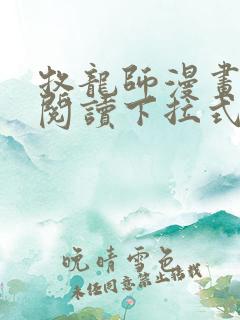 牧龍師漫畫
閱讀下拉式
晚晴雪色
未經同意禁止搭我